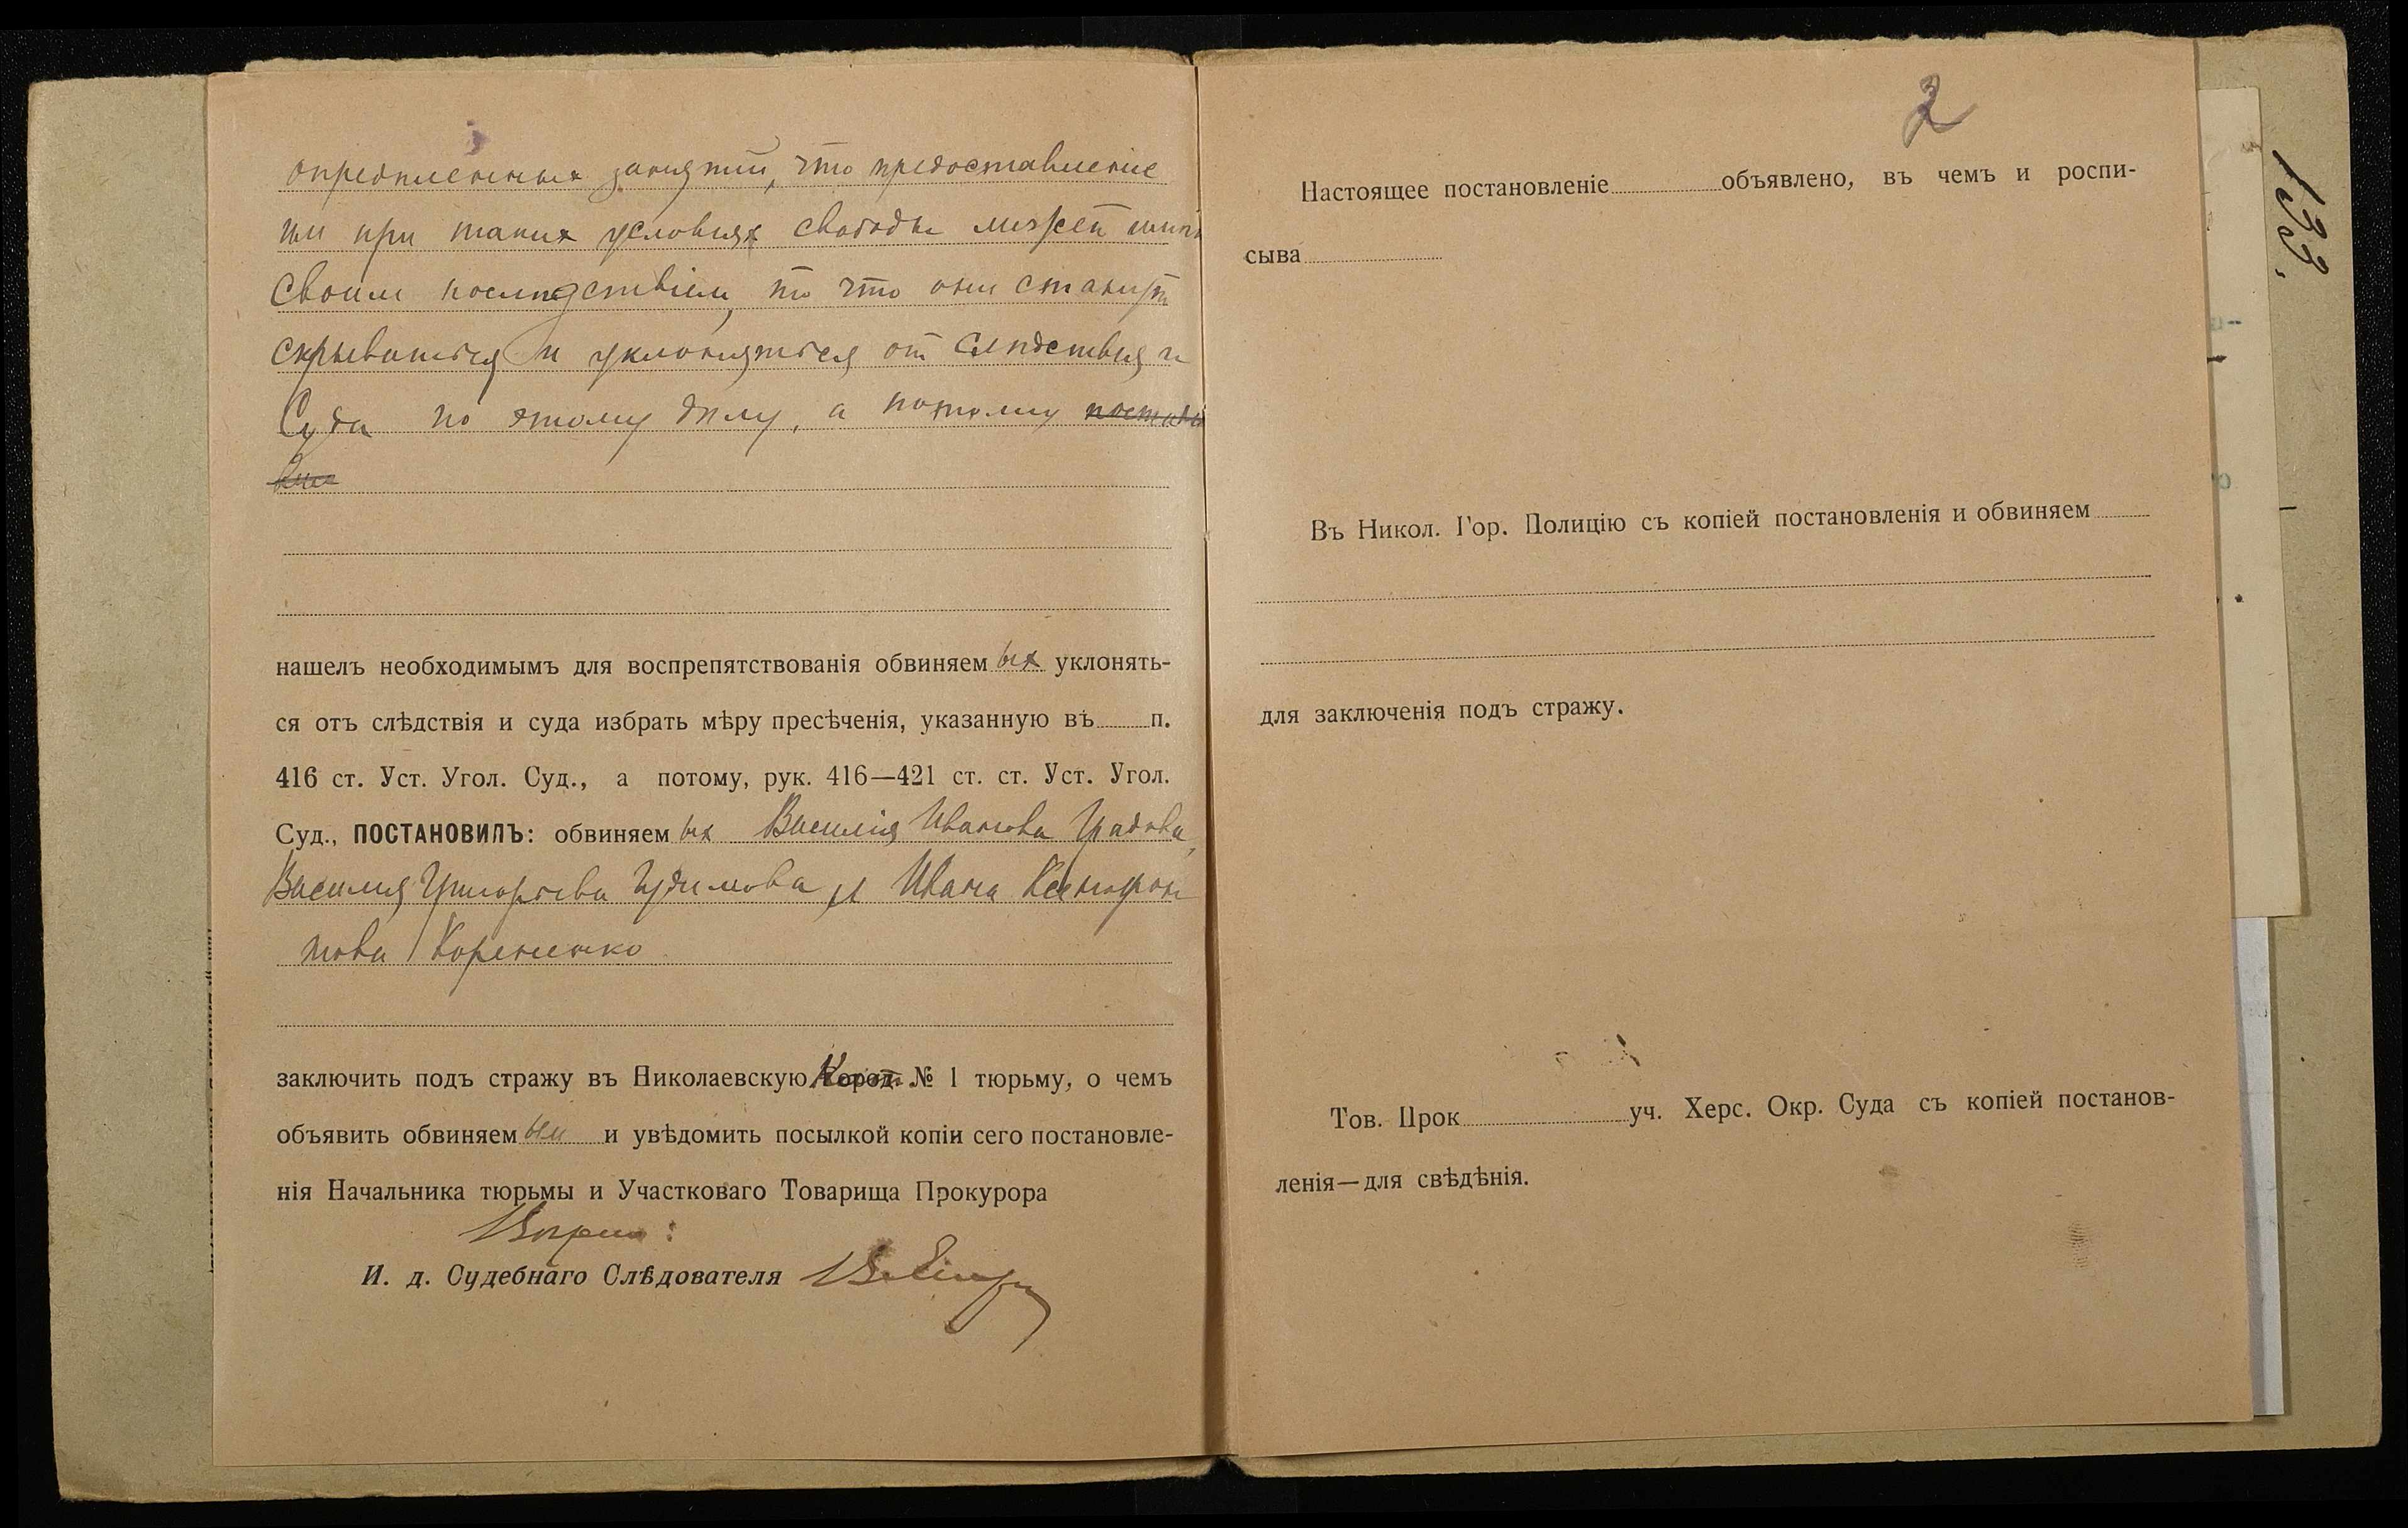 опредѣленныхъ занятій, что предоставленіе
им при таких условиях свободы может имѣть
своим послѣдствіем то что они станут
скрываться и уклоняться от слѣдствия и
Суда по этому дѣлу, а потому постано
вил
нашелъ необходимымъ для воспрепятствованія обвиняемых уклонять-
ся отъ слѣдствія и суда избрать мѣру пресѣченія, указанную въ п.
416 ст. Уст. Угол. Суд., а потому, рук. 416—421 ст. ст. Уст. Угол.
Суд., ПОСТАНОВИЛЪ: обвиняемых Василия Иванова Градова,
Василия Григорьева Гудимова и Ивана Ксенофон
това Корененко
заключить подъ стражу въ Николаевскую № 1 тюрьму, о чемъ
объявить обвиняемым и увѣдомить посылкой копіи сего постановле-
нія Начальника тюрьмы и Участковаго Товарища Прокурора
И. д. Судебнаго Слѣдователя
2
Настоящее постановленіе объявлено, въ чемъ и роспи-
сыва
Въ Никол. Гор. Полицію съ копіей постановленія и обвиняем
для заключенія подъ стражу.
Тов. Прок уч. Херс. Окр. Суда съ копіей постанов-
ленія—для свѣдѣнія.
133.